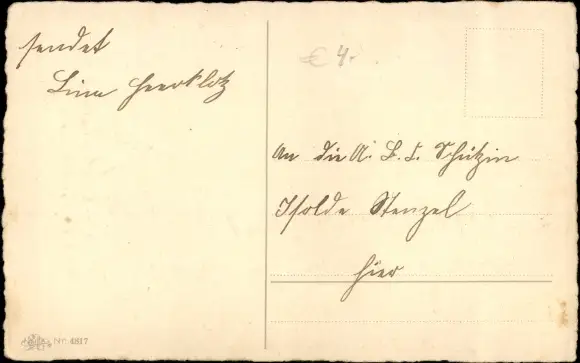 sendet
Lina Heerklotz
€ 4.-
An die A. B. C. Schützin
Isolde Stenzel
hier
Nr. 4817